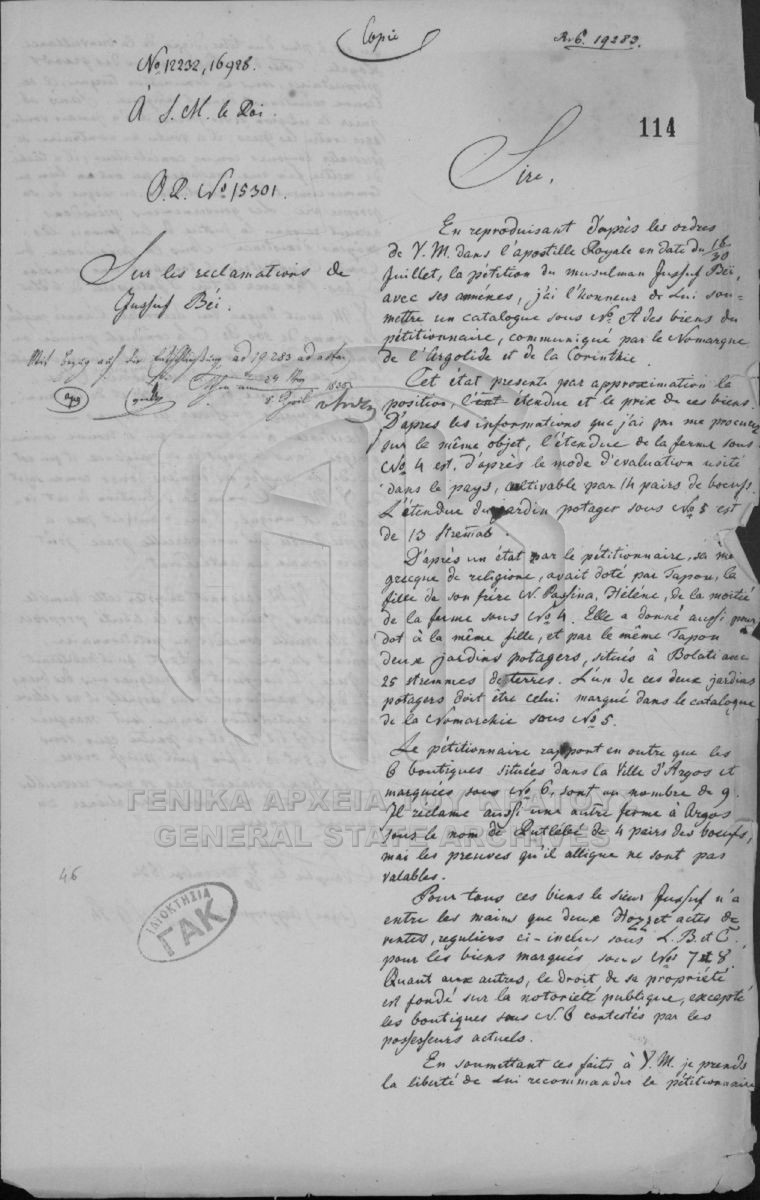 Copie
R.б. 19283.
No 12232, 16928.
À S. M. le Roi.
114
O.R. No 15301.
Sire,
Sur les reclamations de
Jussuf Béi.
Mit Bezug auf die Entschließung ad 19283 ad acta
24
8 April 1835
En reproduisant d'après les ordres
de V. M. dans l'apostille Royale en date du 16/30
Juillet, la pétition du musulman Jussuf Béi,
avec ses annéxes, j'ai l'honneur de Lui sou-
mettre un catalogue sous No. A des biens du
pétitionnaire, communiqué par le Nomarque
de l'Argolide et de la Corinthie.
Cet état presente par approximation la
position, l'état étendue et le prix de ces biens.
D'apres les informations que j'ai pu me procurer
sur le même objet, l'étendue de la ferme sous
No. 4 est, d'après le mode d'evaluation usité
dans le pays, cultivable par 14 pairs de boeufs.
L'étendue du jardin potager sous No 5 est
de 13 Stremab.
D'après un état par le pétitionnaire, sa mè
grecque de religione, avait doté par Tapou, la
fille de son frére N. Passina, Hélène, de la moitié
de la ferme sous No. 4. Elle a donné aussi pour
dot à la même fille, et par le même Tapou
deux jardins potagers, situés à Bolati avec
25 stremmes de terres. L'un de ces deux jardins
potagers doit être celui marqué dans le catalogue
de la Nomarchie sous No 5.
Le pétitionnaire rapport en outre que les
6 boutiques situées dans la Ville d'Argos et
marquées sous No 6, sont au nombre de 9.
Il réclame aussi une autre ferme à Argos
sous le nom de Kutlébé de 4 pairs des boeufs,
mais les preuves qu'il allique ne sont pas
valables.
Pour tous ces biens le sieur Jussuf n'a
entre les mains que deux Hogget actes de
ventes, reguliers ci-inclus sous L. B. et C.
pour les biens marqués sous Nos 7 et 8.
Quant aux autres, le droit de sa propriété
est fondé sur la notorieté publique, excepté
les boutiques sous N. 6 contestés par les
possesseurs actuels.
En soumettant ces faits à V. M. je prends
la liberté de Lui recommander le pétitionnaire
46
ΓΕΝΙΚΑ ΑΡΧΕΙΑ ΤΟΥ ΚΡΑΤΟΥΣ
GENERAL STATE ARCHIVES
ΙΔΙΟΚΤΗΣΙΑ
ΓΑΚ